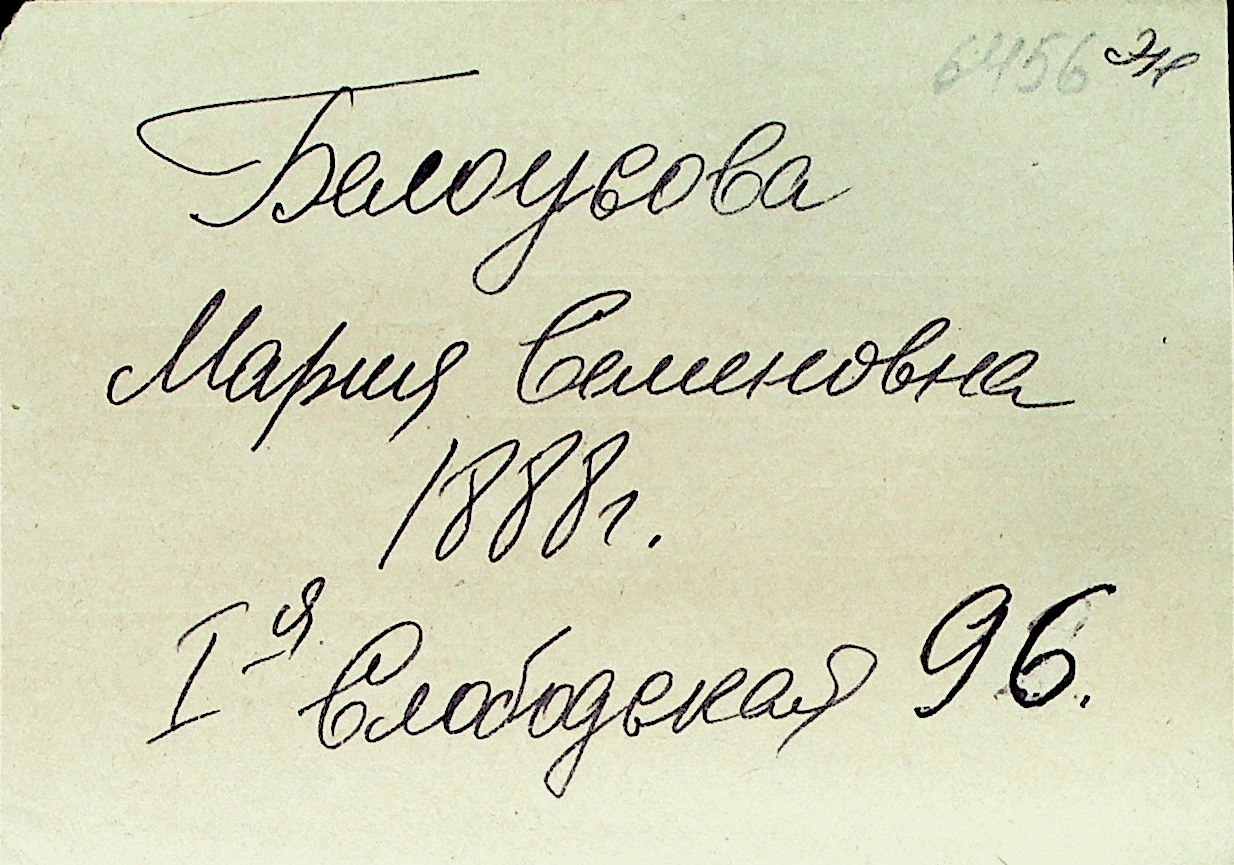 6456 Ж
Белоусова
Мария Семеновна
1888г.
I я Слободская 96.